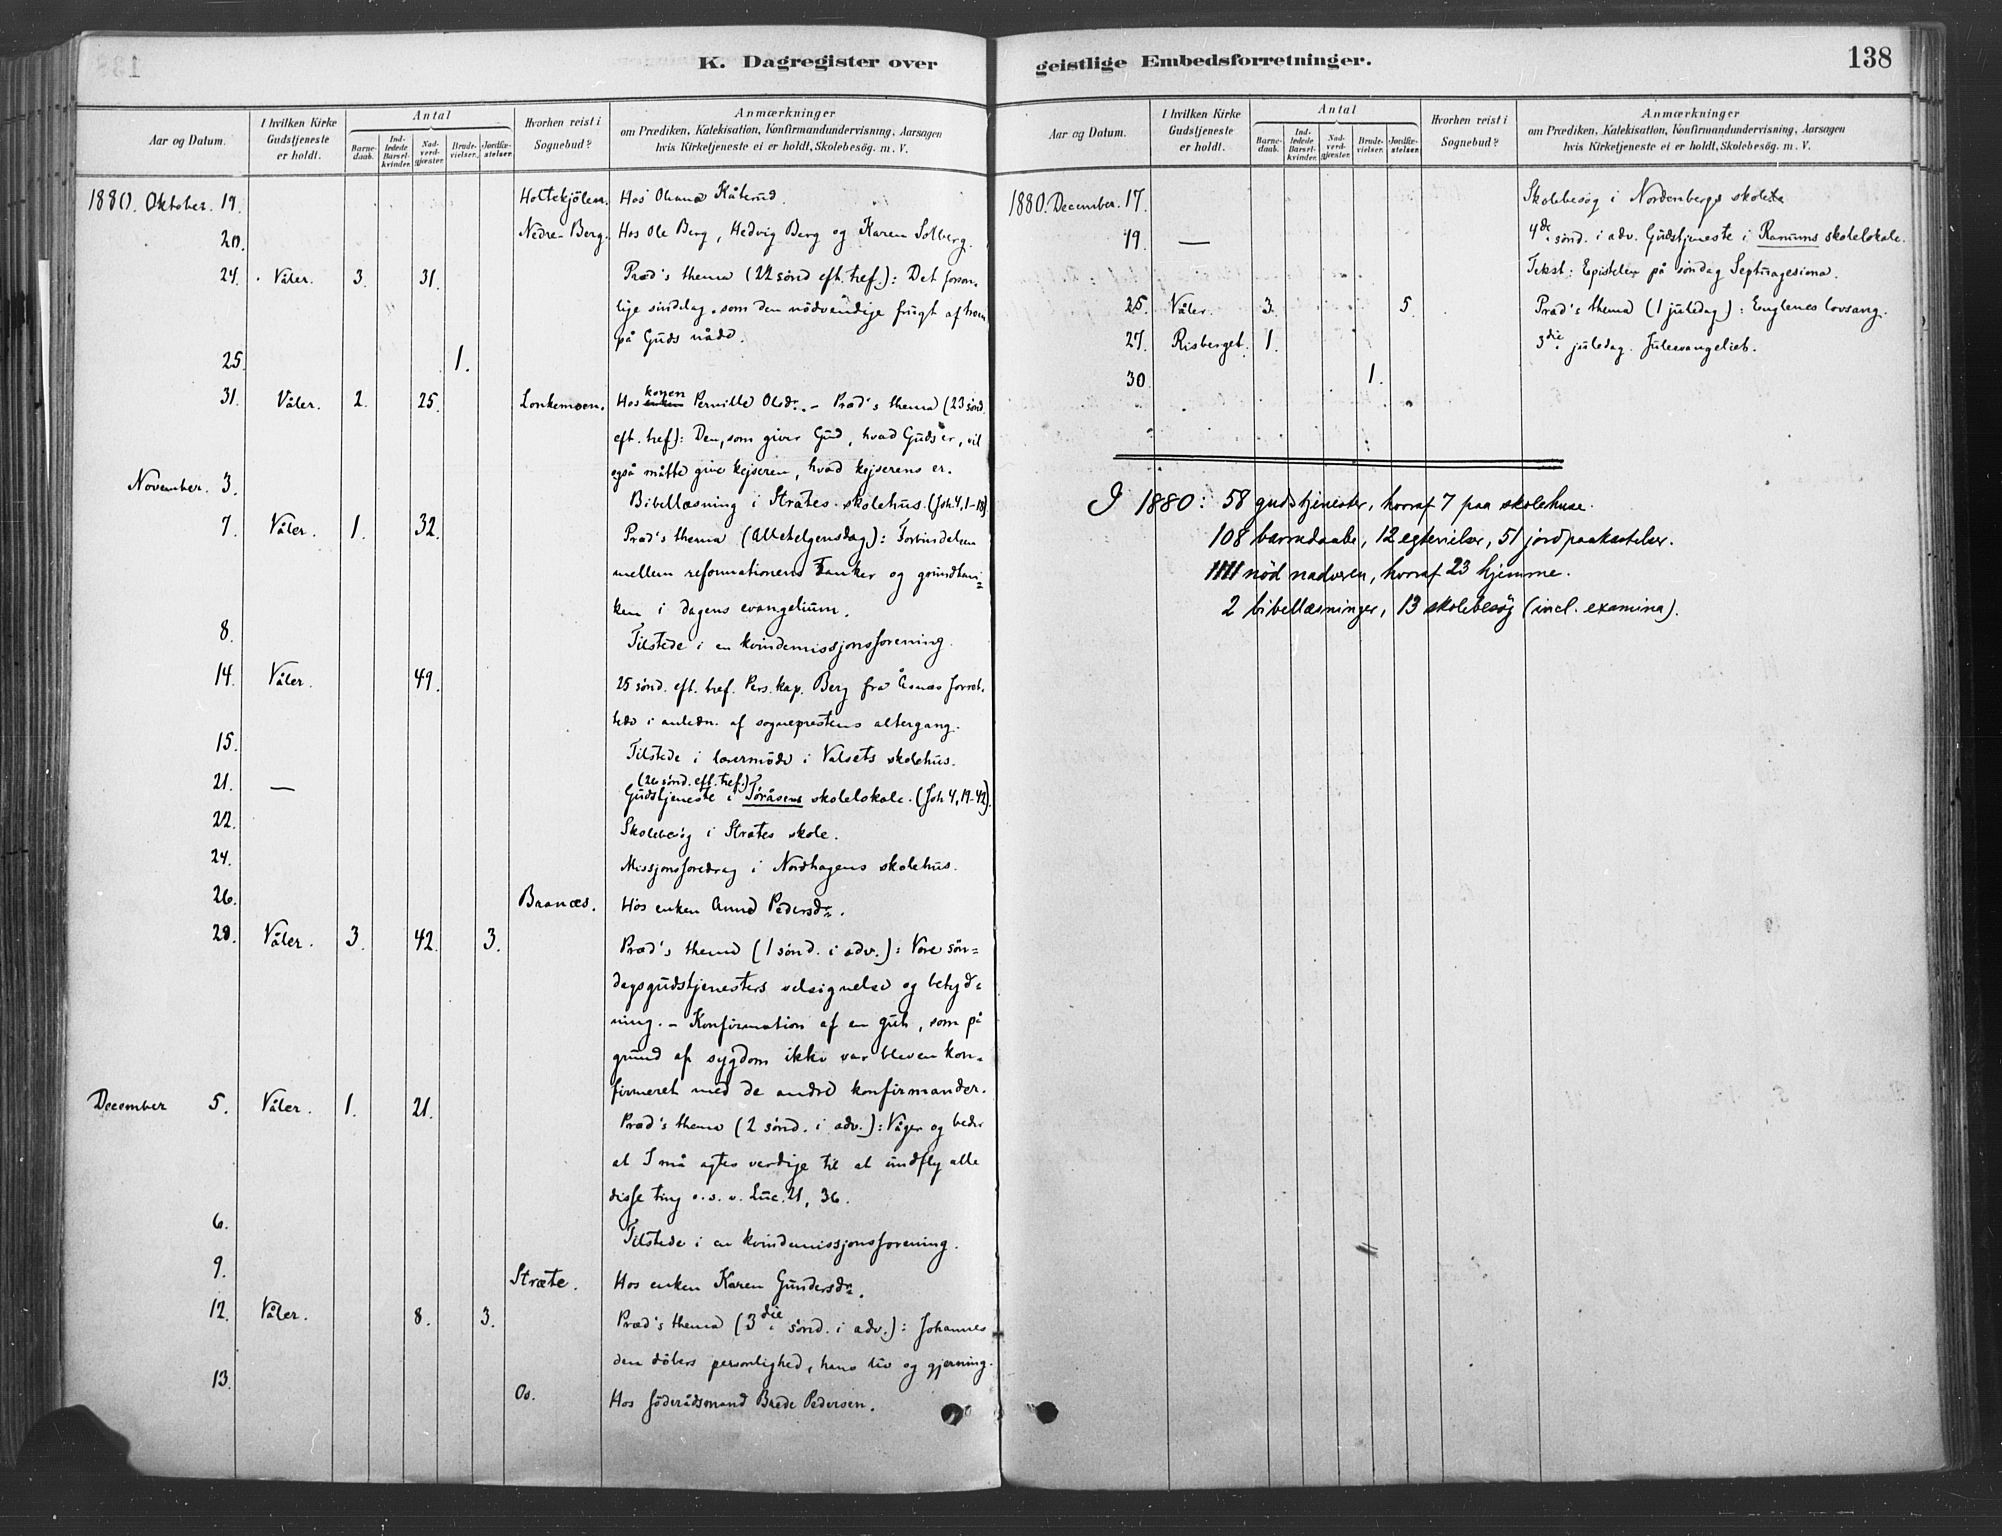 K. Dagregister over
geistlige Embedsforretninger.
138
Aar og Datum.
I hvilken Kirke Gudstjeneste er holdt.
Antal
Barne-daab.
Ind-ledede Barsel-kvinder.
Nad-verd-gjester.
Brude-vielser.
Jordfæ-stelser.
Hvorhen reist i Sognebud?
Anmærkninger
om Prædiken, Katekisation, Konfirmandundervisning, Aarsagen
hvis Kirketjeneste ei er holdt, Skolebesøg. m. V.
1880. Oktober. 19. Holtekjölen. Hos Oleana Kåterud.
20. Nedre-Berg. Hos Ole Berg, Hedvig Berg og Karen Solberg.
24. Våler. 3. 31. Præd's thema (22 sönd eft. tref.): Det forson-
lige sindelag, som den nödvendige frugt af troen
på Guds nåde.
25. 1.
31. Våler. 2. 25. Lonkemoen. Hos enken konen Pernille Olsdr. - Præd's thema (23 sönd.
eft. tref): Den, som giver Gud, hvad Guds er, vil
også måtte give kejseren, hvad kejserens er.
November. 3. Bibellæsning i Stråtes skolehus. (Joh. 4, 1-18)
7. Våler. 1. 32. Præd's thema (Allehelgensdag): Forbindelsen
mellem reformationens Tanker og grundtan-
ken i dagens evangelium.
8. Tilstede i en kvindemissjonsforening.
14. Våler. 49. 25 sönd. eft. tref. Pers. kap. Berg fra Åsnæs forret-
tede i anledn. af sogneprestens altergang.
15. Tilstede i lærermöde i Valsets skolehus.
21. — (26 sönd. eft. tref.)
Gudstjeneste i Töråsens skolelokale. (Joh 4, 19-42).
22. Skolebesög i Stråtes skole.
24. Missjonsforedrag i Nordhagens skolehus.
26. Branæs. Hos enken Anne Pedersdr.
28. Våler. 3. 42. 3. Præd's thema (1 sönd. i adv.): Vore sön-
dagsgudstjenesters velsignelse og betyd-
ning. - Konfirmation af en gut, som på
grund af sygdom ikke var bleven kon-
firmeret med de andre konfirmander.
December 5. Våler. 1. 21. Præd's thema (2 sönd. i adv.): Våger og beder
at I må agtes værdige til at undfly alle
disse ting o. s. v. Luc. 21, 36.
6. Tilstede i en kvindemissjonsforening.
9. Stræte. Hos enken Karen Gundersdr.
12. Våler. 8. 3. Præd's thema (3die sönd. i adv.): Johannes
den döbers personlighed, hans liv og gjerning.
13. Os. Hos föderådsmand Brede Pedersen.
Aar og Datum.
I hvilken Kirke Gudstjeneste er holdt.
Antal
Barne-daab.
Ind-ledede Barsel-kvinder.
Nad-verd-gjester.
Brude-vielser.
Jordfæ-stelser.
Hvorhen reist i Sognebud?
Anmærkninger
om Prædiken, Katekisation, Konfirmandundervisning, Aarsagen
hvis Kirketjeneste ei er holdt, Skolebesøg. m. V.
1880. December. 17. Skolebesög i Nordenbergs skole.
19. — 4de sönd. i adv. Gudstjeneste i Ranums skolelokale.
Tekst: Epistelen på söndag Septuagesima.
25. Våler. 3. 5. Præd's thema (1 juledag): Englenes lovsang.
27. Risberget. 1. 3die juledag. Juleevangeliet.
30. 1.
I 1880: 58 gudstjenester, hvoraf 7 paa skolehuse.
108 barnedaabe, 12 egtevielser, 51 jordpaakastelser.
1111 nød nadveren, hvoraf 23 hjemme.
2 bibellæsninger, 13 skolebesøg (incl. examina).